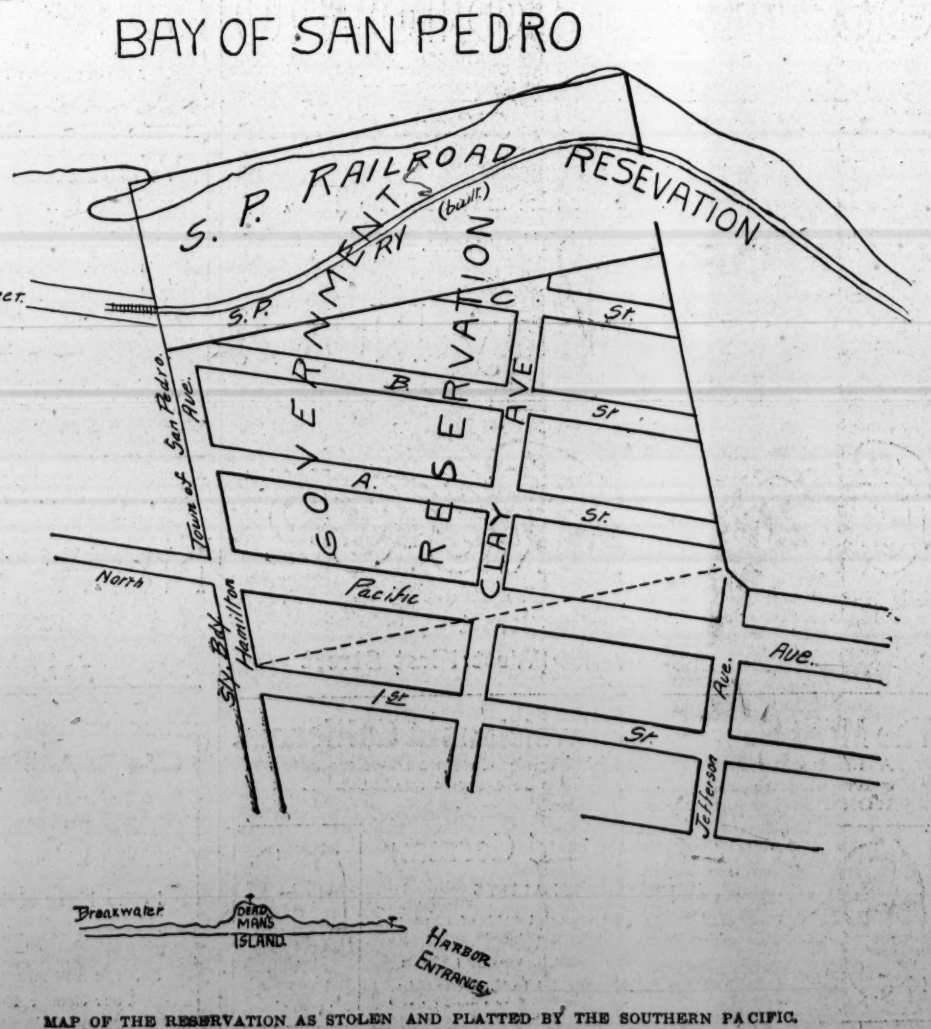 BAY OF SAN PEDRO
S. P. RAILROAD RESEVATION
(built.)
S.P. RY
GOVERNMENT
RESERVATION
C St.
B. St
A St.
CLAY AVE
Town of San Pedro.
Ave.
North
Pacific Ave.
Hamilton
1st St.
Jefferson Ave.
Breakwater
DEAD
MANS
ISLAND.
HARBOR
ENTRANCE
MAP OF THE RESERVATION AS STOLEN AND PLATTED BY THE SOUTHERN PACIFIC.